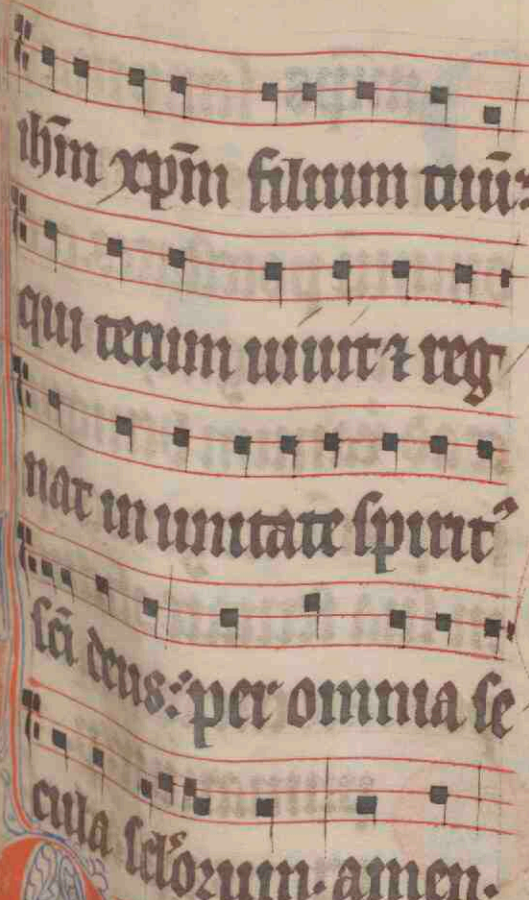 ihm̄ xp̄m filium tuū:
qui tecum uiuit ⁊ reg
nat in unitate spirit⁹
sc̄i deus: per omnia se
cula sclꝰorum. amen.